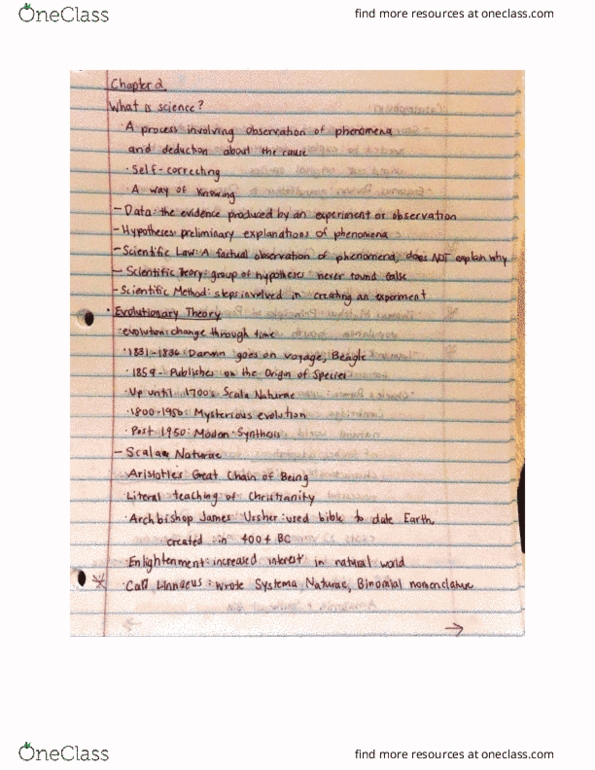 OneClass
find more resources at oneclass.com
Chapter 2
What is science?
· A process involving observation of phenomena
and deduction about the cause
· Self-correcting
· A way of knowing
- Data: the evidence produced by an experiment or observation
- Hypotheses: preliminary explanations of phenomena
- Scientific Law: A factual observation of phenomena, does NOT explain why
- Scientific Theory: group of hypotheses never found false
- Scientific Method: steps involved in creating an experiment
· Evolutionary Theory
· evolution: change through time
· 1831-1836: Darwin goes on voyage, Beagle
· 1859- Publishes on the Origin of Species
· Up until 1700's Scala Naturae
· 1800-1950: Mysterious evolution
· Post 1950: Modern Synthesis
- Scala Naturae
· Aristotle's Great Chain of Being
· Literal teaching of Christianity
· Archbishop James Ussher: used bible to date Earth,
created in 4004 BC
· Enlightenment: increased interest in natural world
· Carl Linnaeus: wrote Systema Naturae, Binomial nomenclature
OneClass
find more resources at oneclass.com